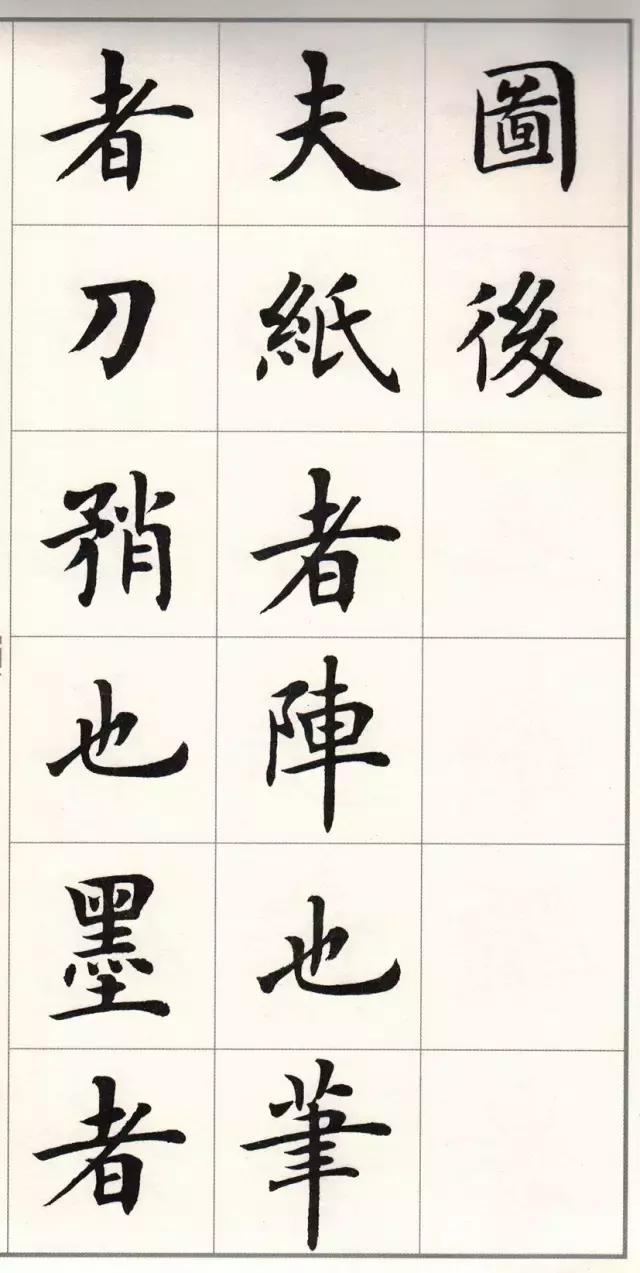 圖後
夫紙者陣也筆
者刀矟也墨者